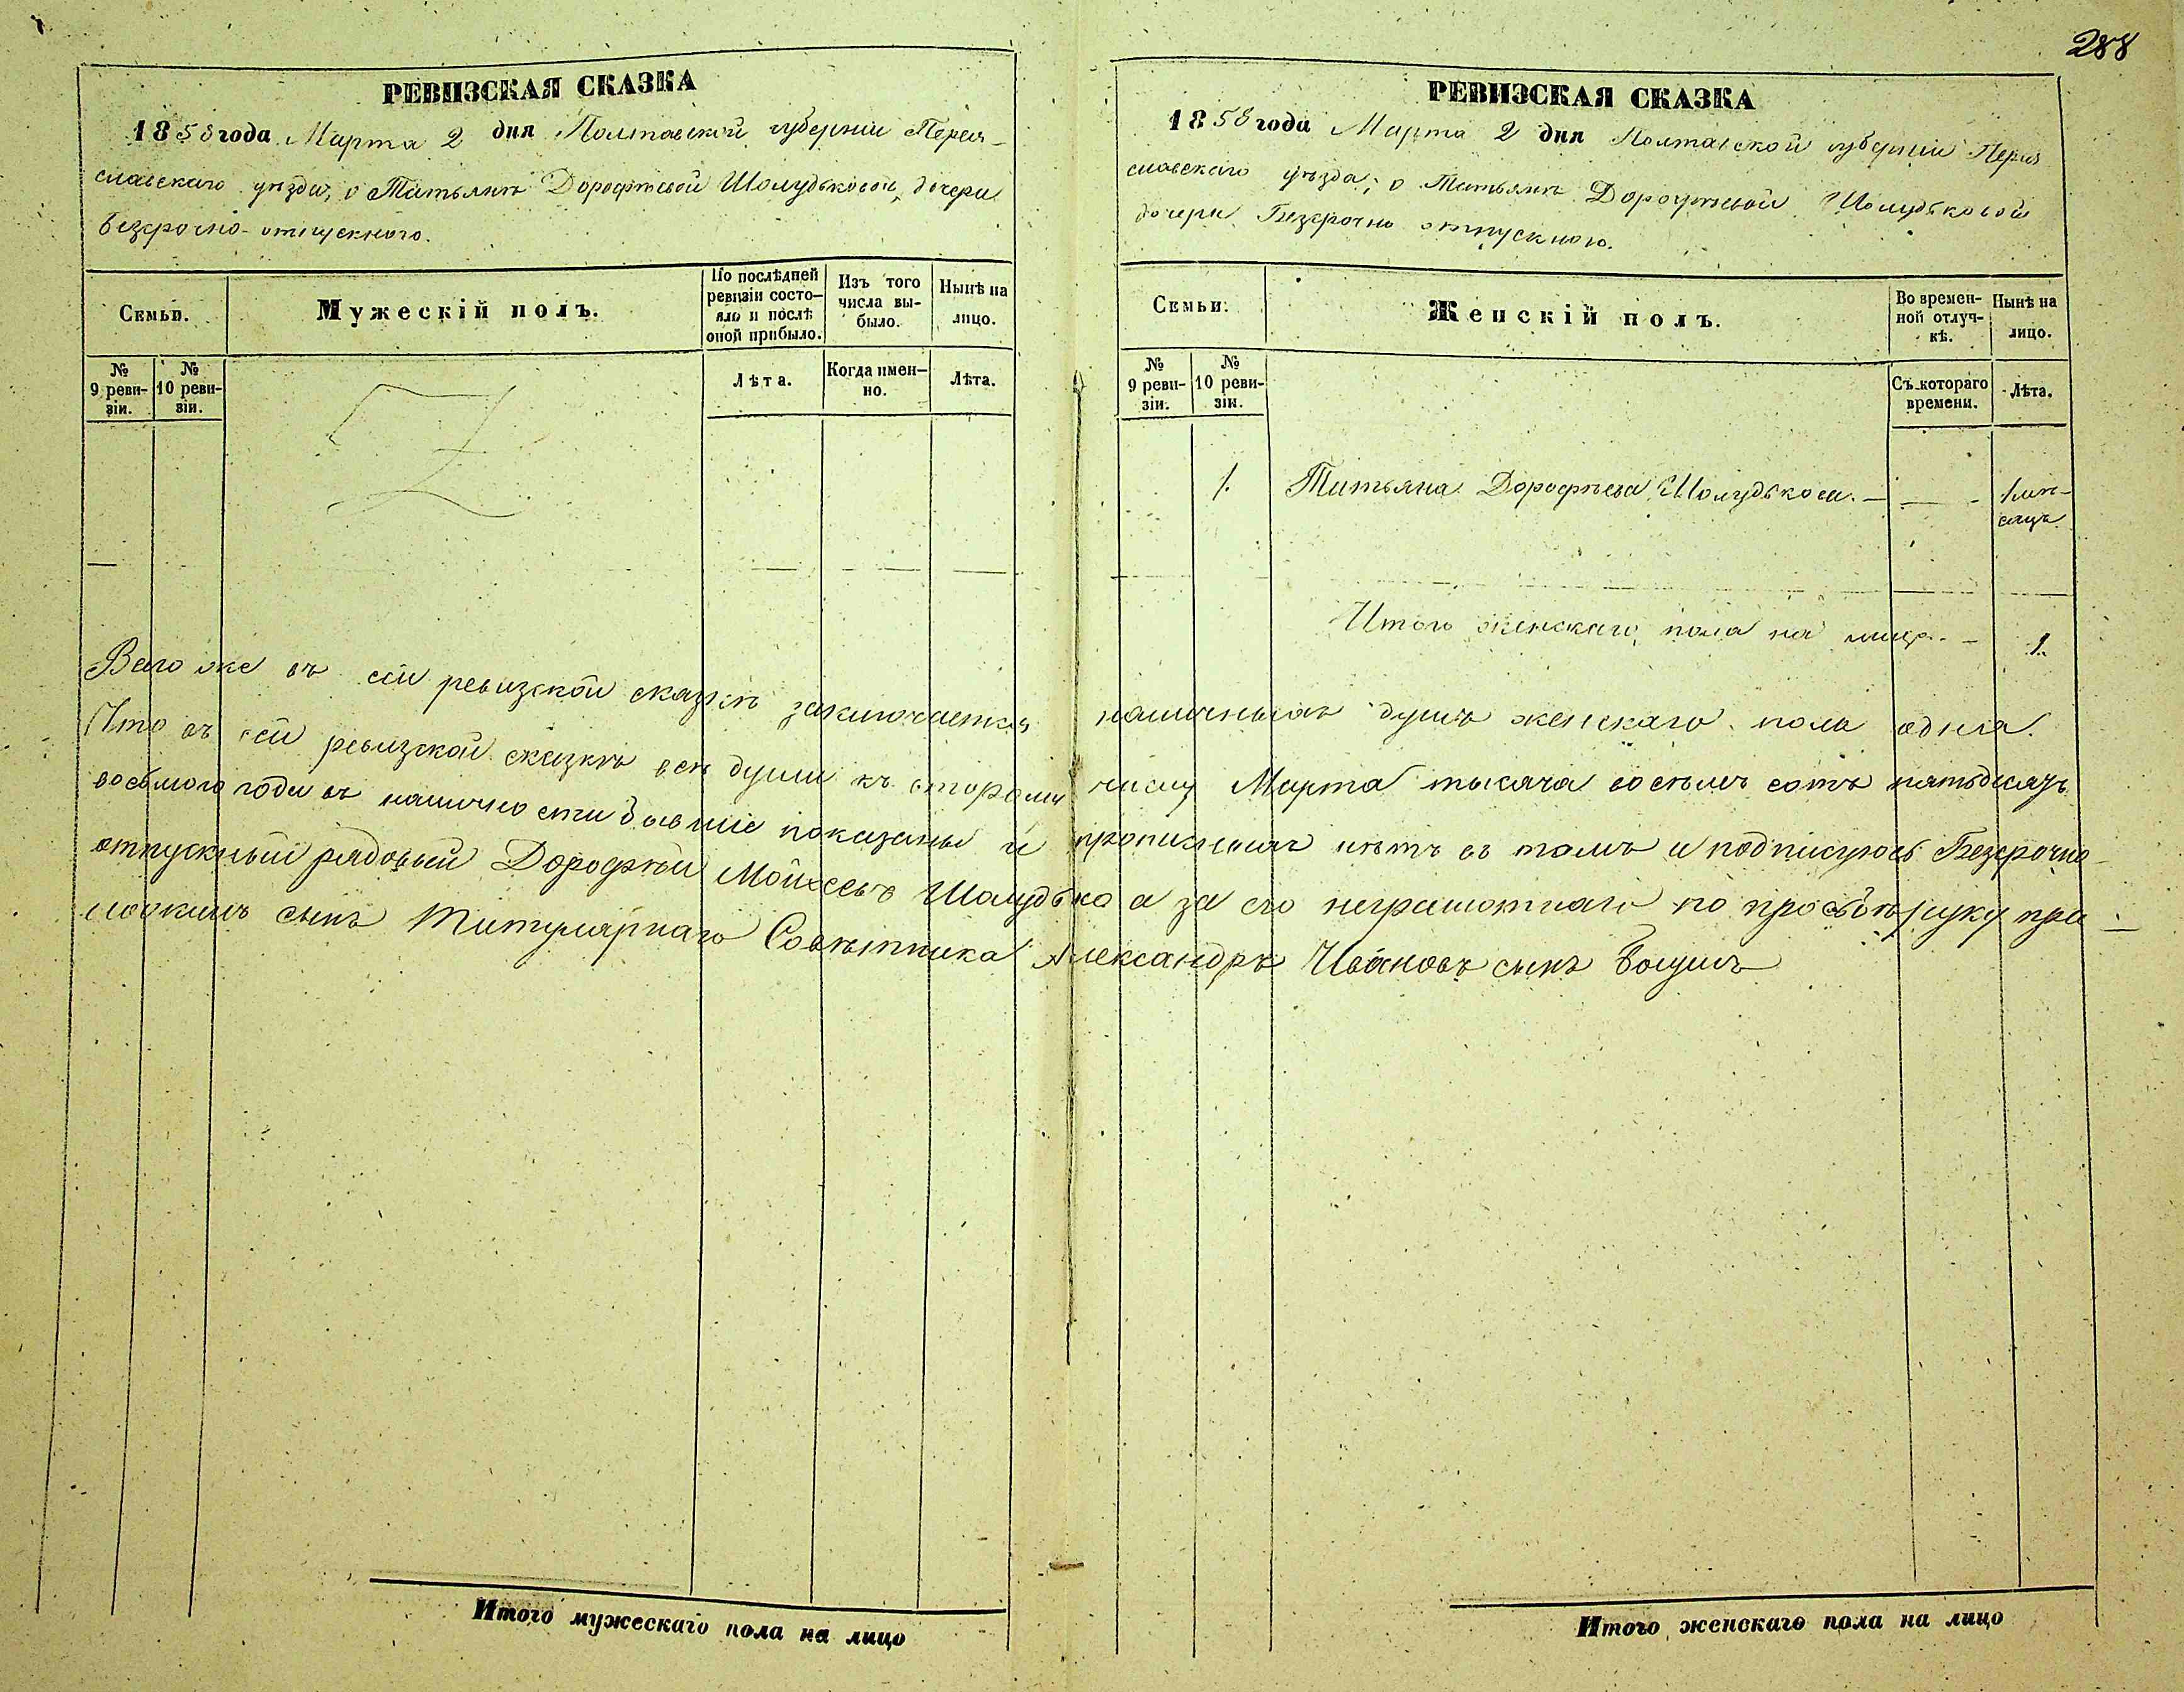 288
РЕВИЗСКАЯ СКАЗКА
1858 года Марта 2 дня Полтавской губерніи Перея-
славскаго уѣзда, о Татьянѣ Дорофѣевой Шолудьковой, дочери
безсрочно-отпускного.
Семьи.
Мужескій полъ.
По послѣдней ревизіи состо-яло и послѣ оной прибыло.
Изъ того числа вы-было.
Нынѣ на лицо.
№ 9 реви-зіи.
№ 10 реви-зіи.
Лѣта.
Когда имен-но.
Лѣта.
РЕВИЗСКАЯ СКАЗКА
1858 года Марта 2 дня Полтавской губерніи Перея
славскаго уѣзда, о Татьянѣ Дорофѣевой Шолудьковой
дочери Безсрочно отпускного.
Семьи.
Женскій полъ.
Во времен-ной отлуч-кѣ.
Нынѣ на лицо.
№ 9 реви-зіи.
№ 10 реви-зіи.
Съ котораго времени.
Лѣта.
1. Татьяна Дорофѣева Шолудькова. — — - 1 мѣ-
сяцъ
Итого женскаго пола на лицо. - 1.
Всего же въ сей ревизской сказкѣ заключается наличныхъ душъ женскаго пола одна.
Что въ сей ревизской сказкѣ всѣ души къ второму числу Марта тысяча восемь сотъ пятьдесятъ
восьмого года въ наличности бывшіе показаны и прописныхъ нѣтъ въ томъ и подписуюсь Безсрочно-
отпускный рядовый Дорофѣй Мойсеевъ Шолудько а за его неграмотнаго по прозьбѣ руку при-
сынъ Титулярнаго Совѣтника Александръ Ивановъ сынъ
Итого мужескаго пола на лицо
Итого женскаго пола на лицо